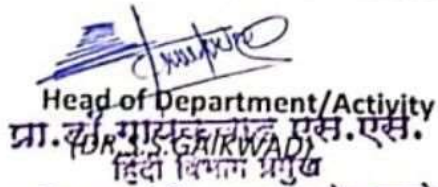 Head of Department/Activity
प्रा.डॉ. गायकवाड एस.एस.
(DR.S.S.GAIKWAD)
हिंदी विभाग प्रमुख